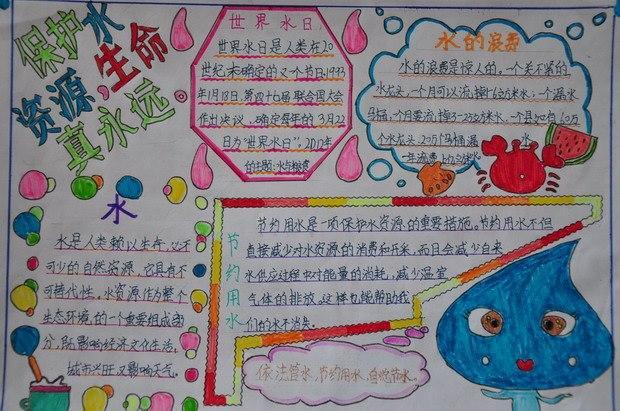 保护水
资源,生命
真永远
世界水日
世界水日是人类在20
世纪末确定的又个节日,1993
年1月18日,第四十七届联合国大会
作出决议,确定每年的3月22
日为"世界水日",2012年
的主题:水与粮食
水的浪费
水的浪费是惊人的,一个关不紧的
水龙头,一个月可以流掉1-6立方米水,一个漏水
马桶,一个月要流掉3-25立方米水,一个县如有60万
个水龙头,20万个马桶漏水
一年流费上亿立方米
水
水是人类赖以生存,必不
可少的自然资源,它具有不
可替代性,水资源作为整个
生态环境,的一个重要组成部
分,既影响经济文化生活,
城市兴旺又影响天气。
节约用水
节约用水是一项保护水资源,的重要措施。节约用水不但
直接减少对水资源的消费和开采,而且会减少自来
水供应过程中对能量的消耗,减少温室
气体的排放,这样也能帮助我
们的水不消失。
依法管水,节约用水,自觉节水。